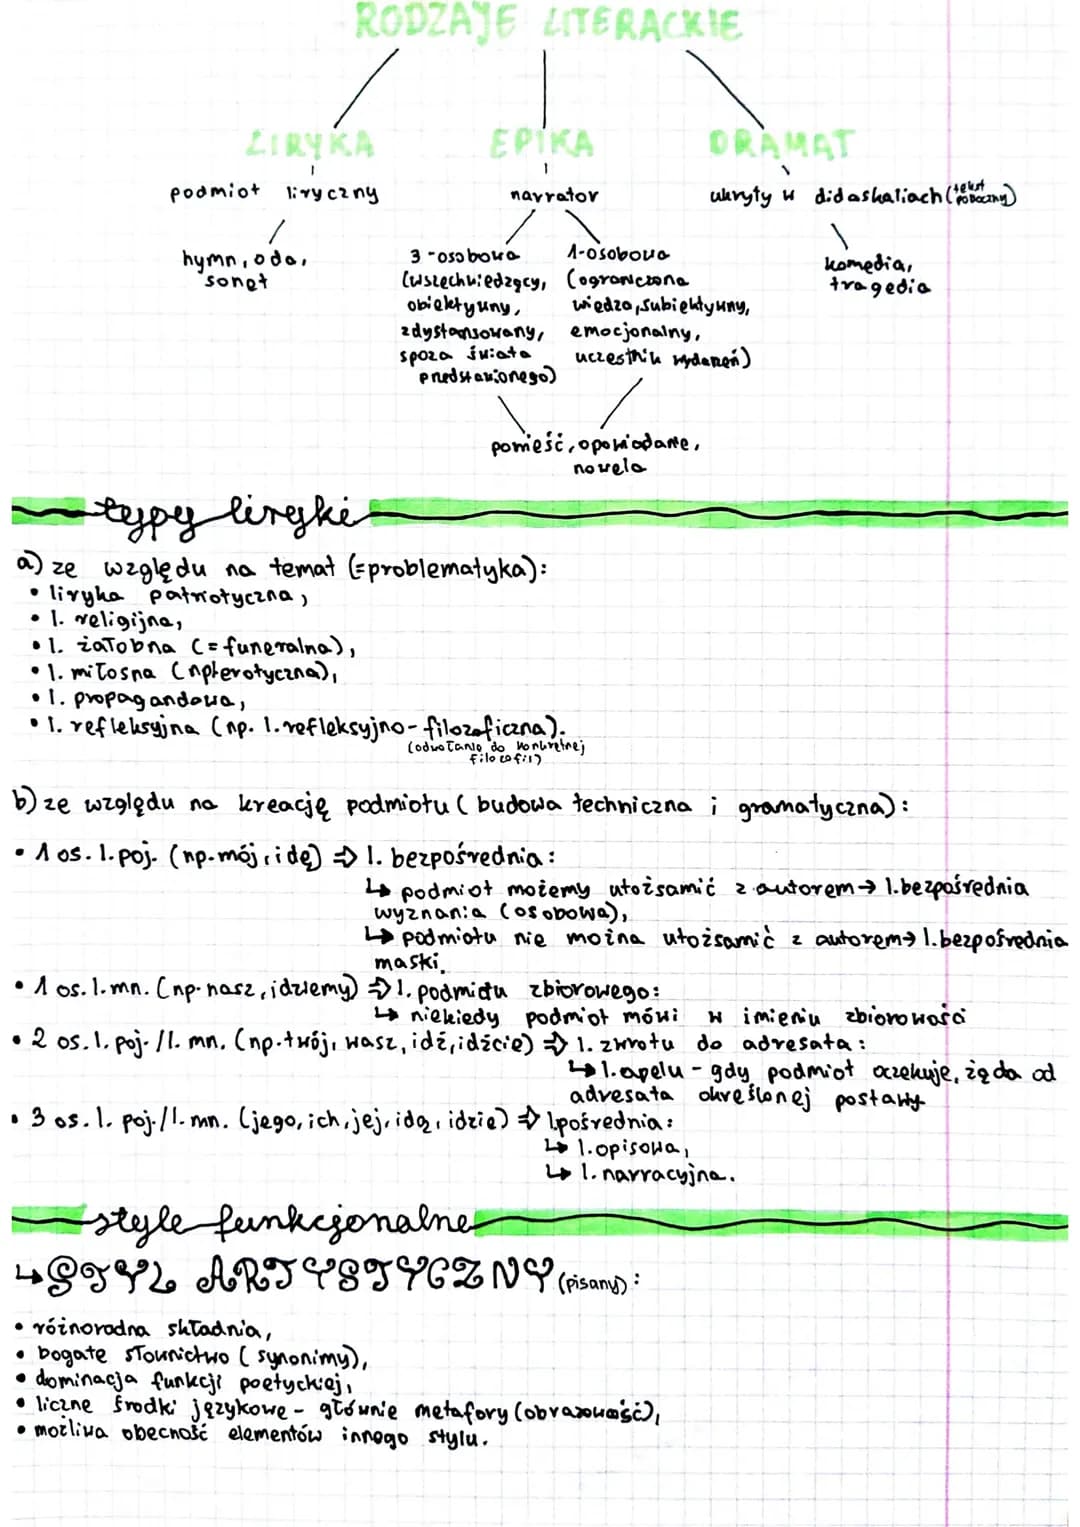 RODZAJE LITERACKIE
LIRYKA EPIKA DRAMAT
podmiot liryczny
narrator
ukryty w didaskaliach (tekst poboczny)
hymn, oda,
sonet
3-osobowa
(wszechwiedzący,
obiektywny,
zdystansowany,
spoza świata
przedstawionego)
1-osobowa
(ograniczona
wiedza, subiektywny,
emocjonalny,
uczestnik wydarzeń)
komedia,
tragedia
powieść, opowiadanie,
nowela
typy liryki
a) ze względu na temat (=problematyka):
• liryka patriotyczna,
• l. religijna,
• l. żałobna (=funeralna),
• l. miłosna (np. erotyczna),
• l. propagandowa,
• l. refleksyjna (np. l. refleksyjno-filozoficzna).
(odwołanie do konkretnej
filozofii)
b) ze względu na kreację podmiotu (budowa techniczna i gramatyczna):
• 1 os. l. poj. (np. mój, idę) ⇒ l. bezpośrednia:
↳ podmiot możemy utożsamić z autorem → l. bezpośrednia
wyznania (osobowa),
↳ podmiotu nie można utożsamić z autorem → l. bezpośrednia
maski.
• 1 os. l. mn. (np. nasz, idziemy) ⇒ l. podmiotu zbiorowego:
↳ niekiedy podmiot mówi w imieniu zbiorowości
• 2 os. l. poj. / l. mn. (np. twój, wasz, idź, idźcie) ⇒ l. zwrotu do adresata:
↳ l. apelu - gdy podmiot oczekuje, żąda od
adresata określonej postawy
• 3 os. l. poj. / l. mn. (jego, ich, jej, idą, idzie) ⇒ l. pośrednia:
↳ l. opisowa,
↳ l. narracyjna.
style funkcjonalne
↳ STYL ARTYSTYCZNY (pisany):
• różnorodna składnia,
• bogate słownictwo (synonimy),
• dominacja funkcji poetyckiej,
• liczne środki językowe - głównie metafory (obrazowość),
• możliwa obecność elementów innego stylu.